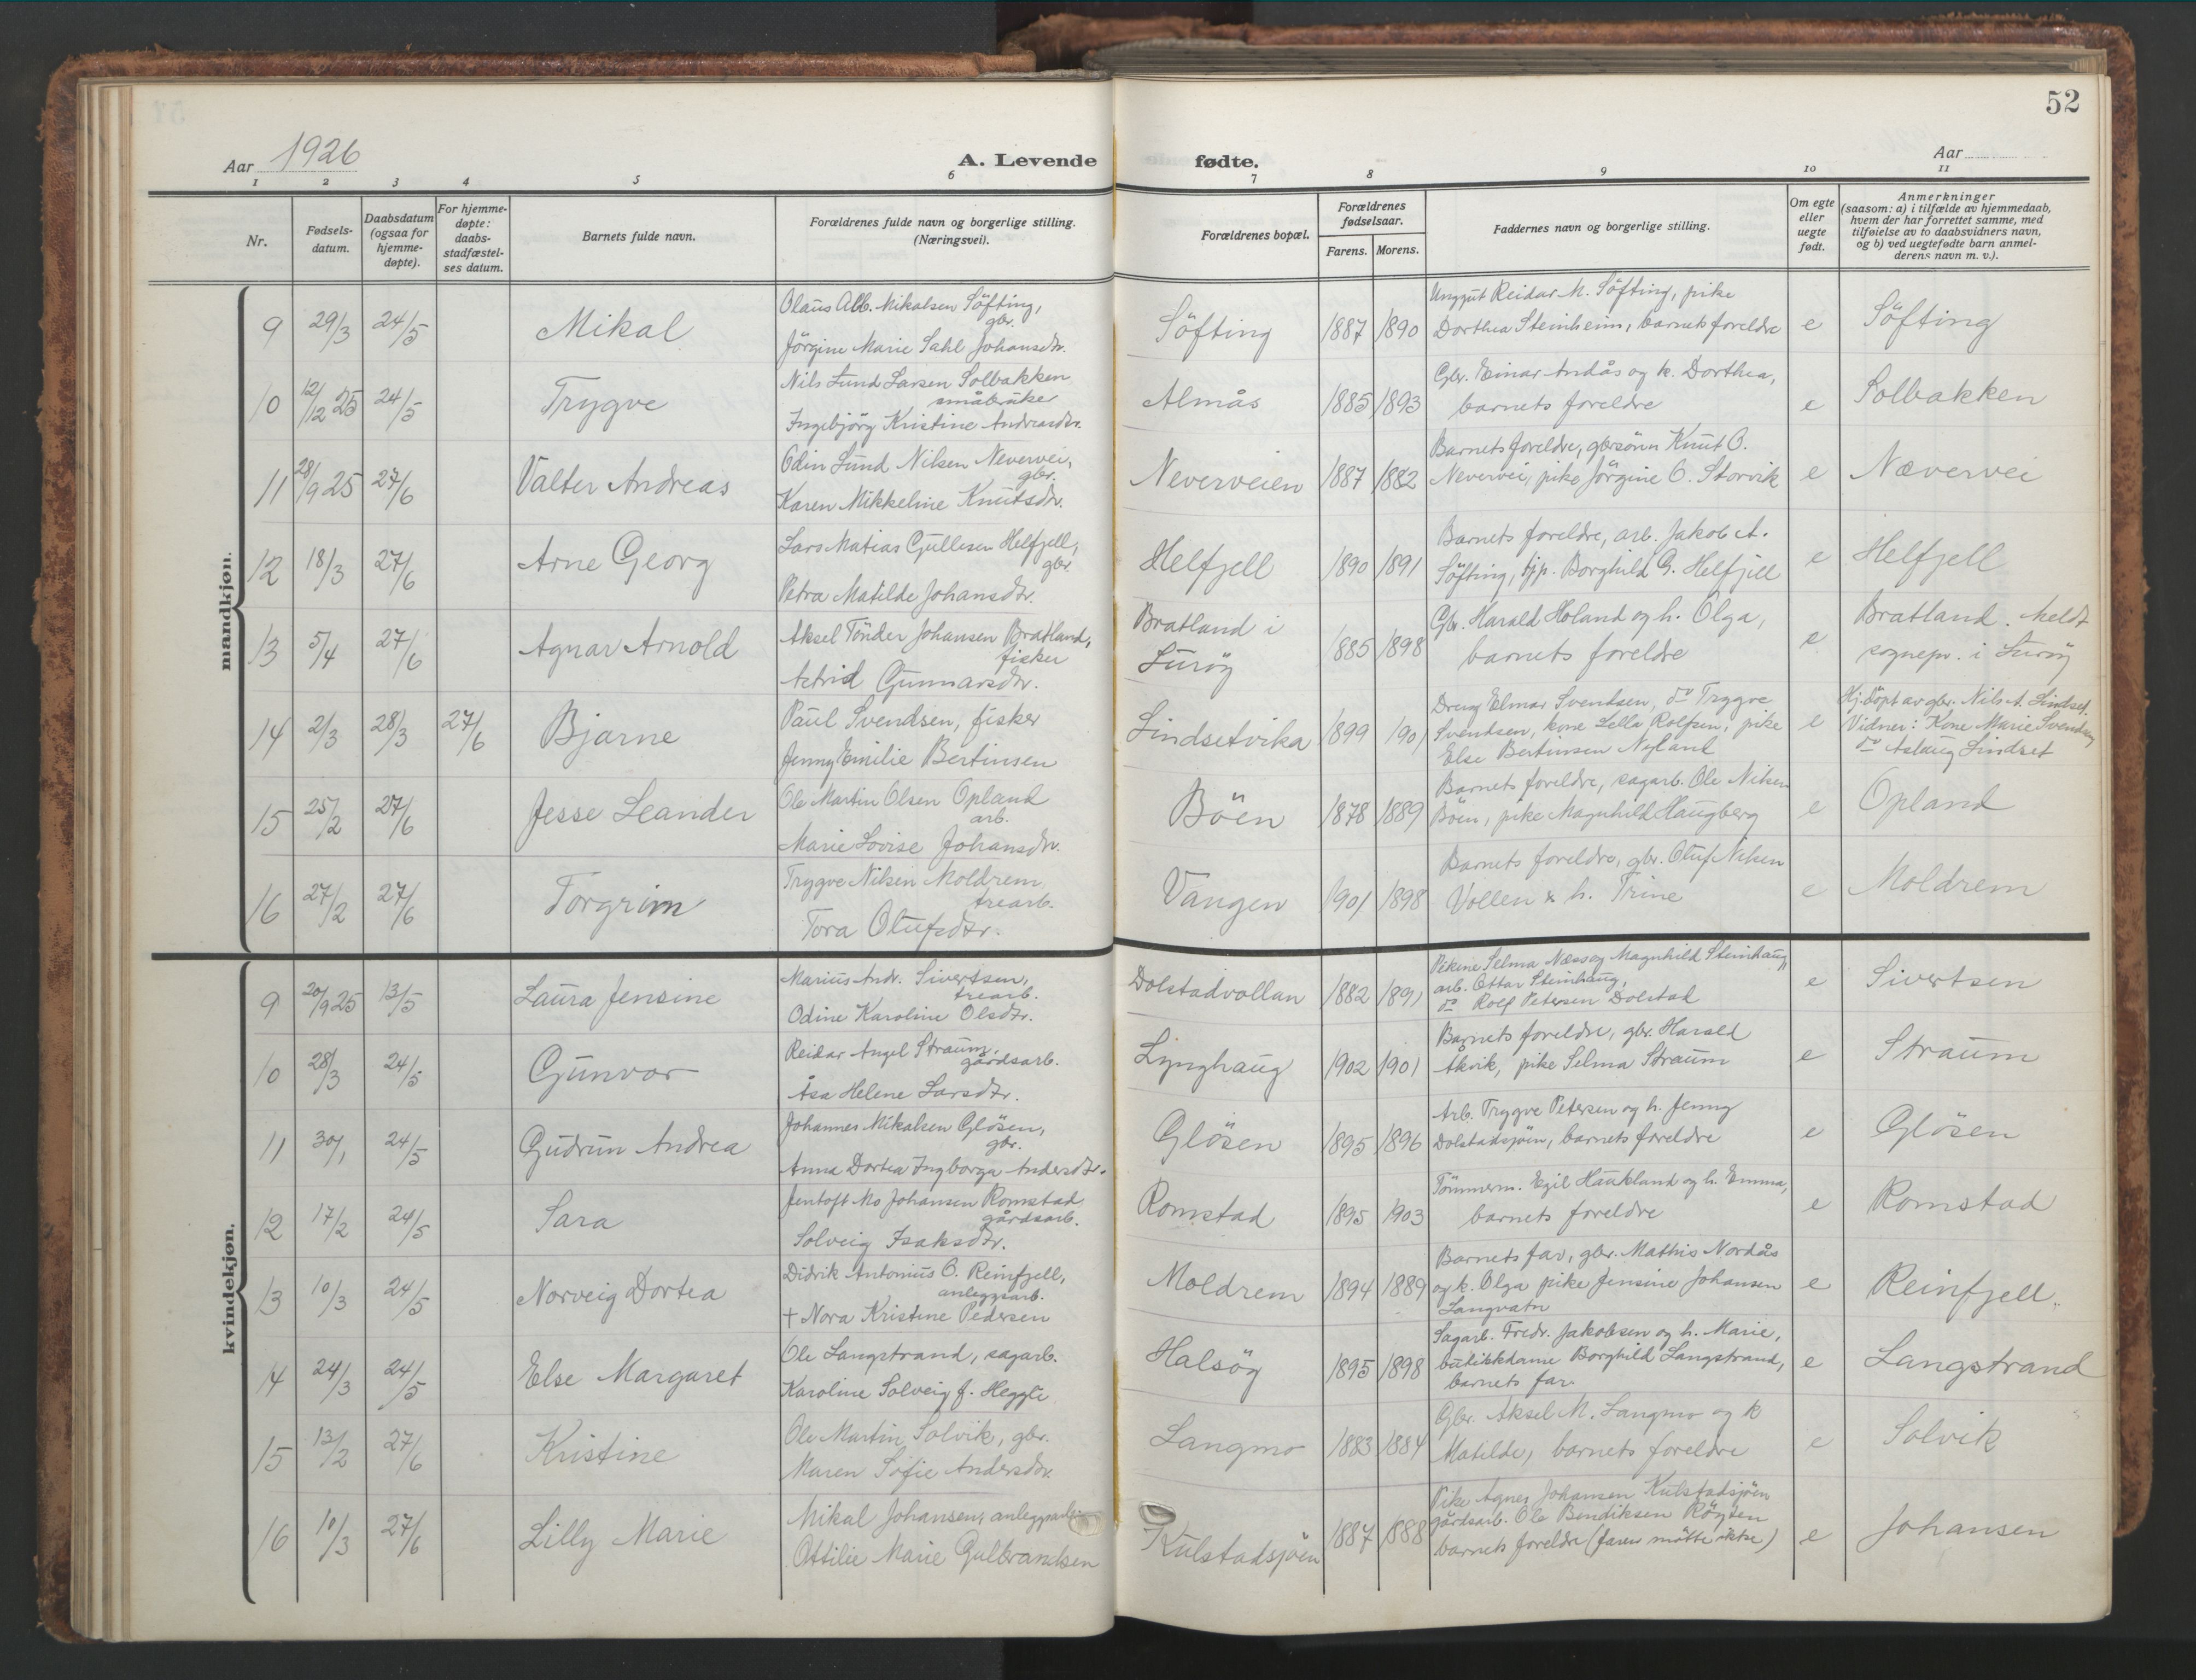 52
Aar 1926
A. Levende fødte.
Aar
1 2 3 4 5 6 7 8 9 10 11
Nr.
Fødsels-
datum.
Daabsdatum
(ogsaa for
hjemme-
døpte).
For hjemme-
døpte:
daabs-
stadfæstel-
ses datum.
Barnets fulde navn.
Forældrenes fulde navn og borgerlige stilling.
(Næringsvei).
Forældrenes bopæl.
Forældrenes
fødselsaar.
Farens. Morens.
Faddernes navn og borgerlige stilling.
Om egte
eller
uegte
født.
Anmerkninger
(saasom: a) i tilfælde av hjemmedaab,
hvem der har forrettet samme, med
tilføielse av to daabsvidners navn,
og b) ved uegtefødte barn anmel-
derens navn m. v.).
mandkjøn.
9 29/3 24/5 Mikal
Olaus Alb. Mikalsen Söfting,
gbr.
Jörgine Marie Sahl Johansdtr.
Söfting 1887 1890
Unggut Reidar M. Söfting, pike
Dorthea Steinheim, barnets foreldre
e Söfting
10 12/12 25 24/5 Trygve
Nils Lund Larsen Solbakken
småbruker
Ingebjörg Kristine Andreasdtr.
Almås 1885 1893
Gbr. Einar Andås og k. Dorthea,
barnets foreldre
e Solbakken
11 28/9 25 27/6 Valter Andreas
Odin Lund Nilsen Nevervei,
gbr.
Karen Mikkeline Knutsdtr.
Neverveien 1887 1882
Barnets foreldre, gbrsönn Knut O.
Nevervei, pike Jörgine O. Storvik
e Nævervei
12 18/3 27/6 Arne Georg
Lars Matias Gullesen Helfjell,
gbr.
Petra Matilde Johansdtr.
Helfjell 1890 1891
Barnets foreldre, arb. Jakob A.
Söfting, tjp. Borghild G. Helfjell
e Helfjell
13 5/4 27/6 Agnar Arnold
Aksel Tönder Johansen Bratland,
fisker
Astrid Gunnarsdtr.
Bratland i
Luröy
1885 1898
Gbr. Harald Holand og h. Olga,
barnets foreldre
e
Bratland. Meldt
sognepr. i Luröy
14 2/3 28/3 27/6 Bjarne
Paul Svendsen, fisker
Jenny Emilie Bertinsen
Lindsetvika 1899 1901
Dreng Elmar Svendsen, do Trygve
Svendsen, kone Lella Rolfsen, pike
Else Bertinsen Nyland
e
Hj.döpt av gbr. Nils A. Lindset.
Vidner: Kone Marie Svendsen
do Aslaug Lindset
15 25/2 27/6 Jesse Leander
Ole Martin Olsen Opland
arb.
Marie Lovise Johansdtr.
Böen 1878 1889
Barnets foreldre, sagarb. Ole Nilsen
Böen, pike Magnhild Haugberg
e Opland
16 27/2 27/6 Torgrim
Trygve Nilsen Moldrem
trearb.
Tora Olufsdtr.
Vangen 1901 1898
Barnets foreldre, gbr. Oluf Nilsen
Vollen & h. Trine
e Moldrem
kvindekjøn.
9 20/9 25 13/5 Laura Jensine
Marius Andr. Sivertsen,
trearb.
Odine Karoline Olsdtr.
Dolstadvollan 1882 1891
Pikene Selma Næss og Magnhild Steinhaug,
arb. Ottar Steinhaug,
do Rolf Petersen Dolstad
e Sivertsen
10 28/3 24/5 Gunvor
Reidar Angel Straum,
gårdsarb.
Åsa Helene Larsdtr.
Lynghaug 1902 1901
Barnets foreldre, gbr. Harald
Åkvik, pike Selma Straum
e Straum
11 30/1 24/5 Gudrun Andrea
Johannes Mikalsen Glösen,
gbr.
Anna Dortea Ingborga Andersdtr.
Glösen 1895 1896
Arb. Trygve Petersen og h. Jenny
Dolstadsjöen, barnets foreldre
e Glösen
12 17/2 24/5 Sara
Jentoft Mo Johansen Romstad
gårdsarb.
Solveig Isaksdtr.
Romstad 1895 1903
Tömmerm. Egil Haukland og h. Emma,
barnets foreldre
e Romstad
13 10/3 24/5 Norveig Dortea
Didrik Antonius O. Reinfjell,
anleggsarb.
+ Nora Kristine Pedersen
Moldrem 1894 1889
Barnets far, gbr. Mathis Nordås
og k. Olga pike Jensine Johansen
Langvatn
e Reinfjell
14 24/3 24/5 Else Margaret
Ole Langstrand, sagarb.
Karoline Solveig f. Heggli
Halsöy 1895 1898
Sagarb. Fredr. Jakobsen og h. Marie,
butikkdame Borghild Langstrand,
barnets far
e Langstrand
15 13/2 27/6 Kristine
Ole Martin Solvik, gbr.
Maren Sofie Andersdtr.
Langmo 1883 1884
Gbr. Aksel M. Langmo og k
Matilde, barnets foreldre
e Solvik
16 10/3 27/6 Lilly Marie
Mikal Johansen, anleggsarb.
Ottilie Marie Gulbrandsen
Kulstadsjöen 1887 1888
Pike Agnes Johansen Kulstadsjöen
gårdsarb. Ole Bendiksen Röyten
barnets foreldre (faren mötte ikke)
e Johansen